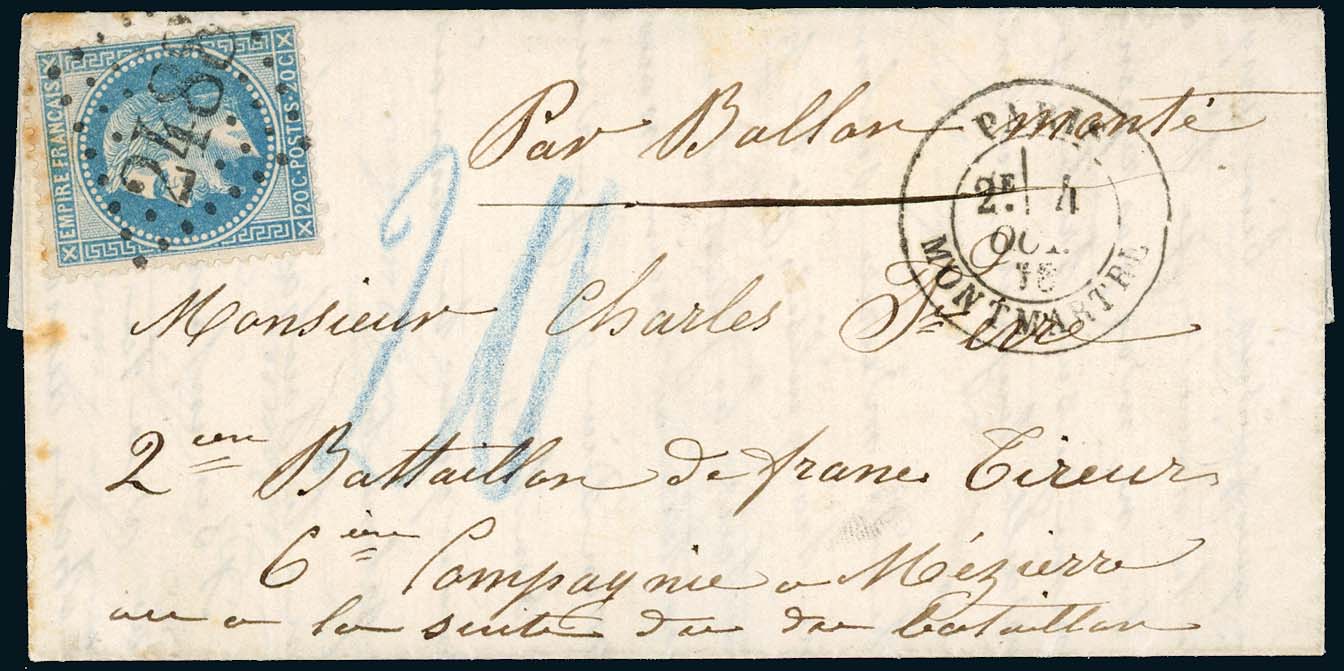 EMPIRE FRANCAIS
20C·POSTES·20C
2488
Par Ballon monté
PARIS
2E 4
OCT.
MONTMARTRE
20
Monsieur Charles
2ieme Battaillon de franc Tireur
6ième Compagnie a Mézierre
ou a la suite du du bataillon